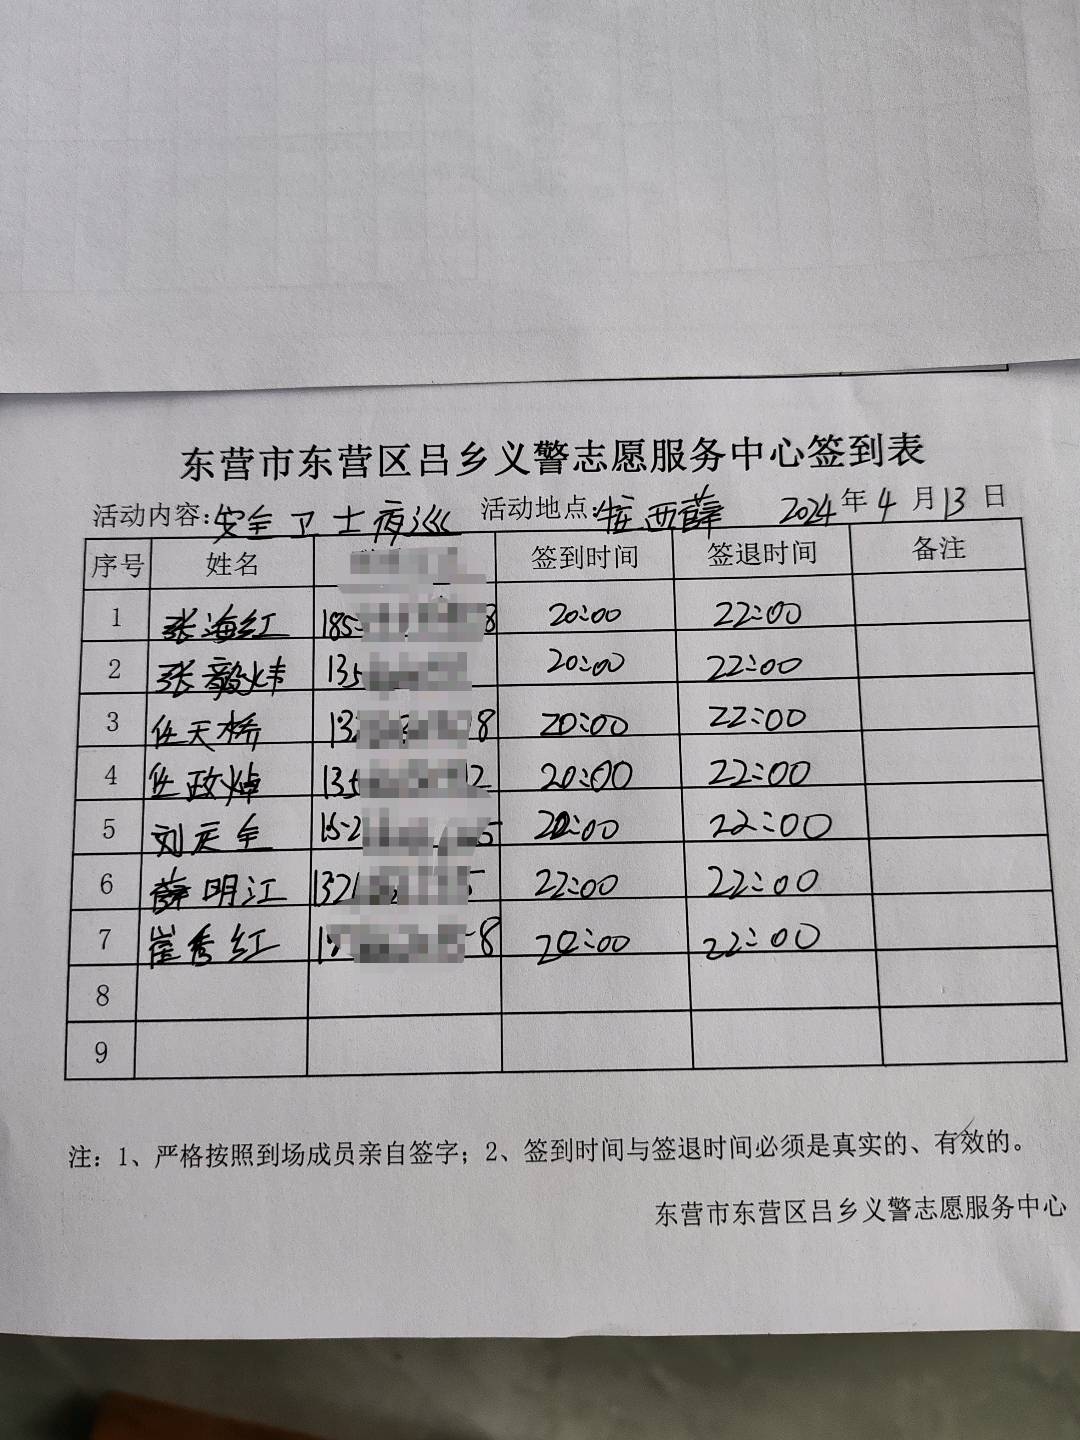 东营市东营区吕乡义警志愿服务中心签到表
活动内容:安全卫士夜巡 活动地点:西薛 2024年4月13日
序号 姓名 签到时间 签退时间 备注
1 张海红 185 8 20:00 22:00
2 张毅炜 135 20:00 22:00
3 任天桥 132 8 20:00 22:00
4 任政焯 135 2 20:00 22:00
5 刘庆全 152 5 20:00 22:00
6 薛明江 1321 5 22:00 22:00
7 崔秀红 1 8 20:00 22:00
8
9
注：1、严格按照到场成员亲自签字；2、签到时间与签退时间必须是真实的、有效的。
东营市东营区吕乡义警志愿服务中心